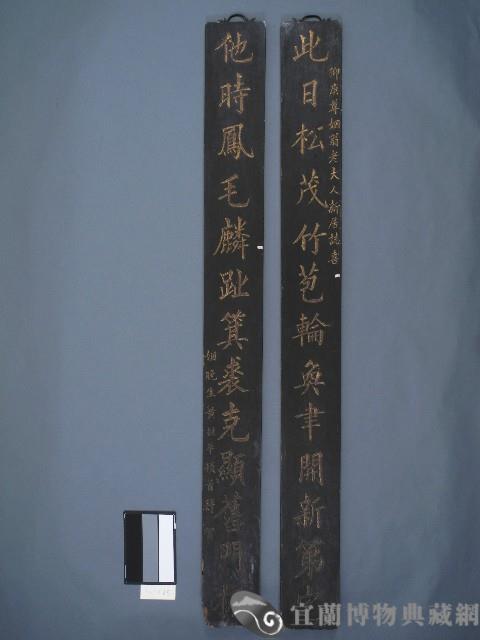 此日松茂竹苞輪奐聿開新第
仰廣尊姻翁老夫人新居誌喜
他時鳳毛麟趾箕裘克顯舊門
姻晚生黃
頓首拜
宜蘭博物典藏網